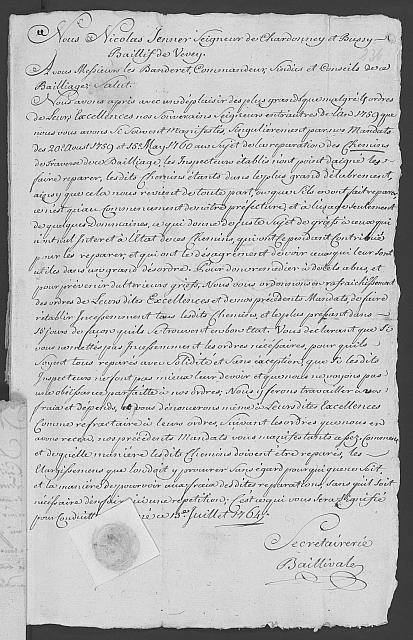 Nous Nicolas Jenner Seigneur de Chardonney et Bussy
Baillif de Vevey.
A vous Messieurs les Banderet, Commandeur, Sindics et Conseils de ce
Bailliage Salut.
Nous avons apris avec un deplaisir des plus grands que malgré les ordres
de Leurs Excellences nos Souverains Seigneurs entr'autres de l'an 1759 que
nous vous avons Souvent manifestés, Singulierement par nos Mandats
des 20e Aoust 1759 et 15e May 1760 au Sujet de la reparation des Chemins
de traverse de ce Bailliage, les Inspecteurs établis n'ont point daigné les
faire reparer, les dits Chemins étants dans le plus grand delabrement,
ainsy que cela nous revient de toute part, ou que s'ils en ont fait reparer,
ce n'est qu'au Commencement de nôtre préfecture, et à l'usage Seulement
de quelques Domaines, ce qui donne de juste Sujet de griefs à ceux qui
n'ont nul Interet à l'Etat de ces Chemins, qui ont Cependant Contribué
pour les reparer, et qui ont le desagrement de voir ceux qui leur Sont
utils dans un grand desordre. Pour donc remedier à de tels abus, et
pour prévenir d'ulterieurs griefs, Nous vous ordonnons en rafraichissement
des ordres de Leurs dites Excellences et de nos précédents Mandats, de faire
rétablir Incessemment tous les dits Chemins, et les plus pressant dans
15 jours de façon qu'ils Se trouvent en bon état. Vous declarant que Si
vous ne mettés pas Incessemment les ordres nécessaires, pour qu'ils
Soyent tous reparés avec Solidité et Sans exception, que Si les dits
Inspecteurs ne font pas mieux leur devoir et que nous ne voyons pas
une obéissance parfaitte à nos ordres, Nous y ferons travailler à vos
fraix et depends, et vous dénoncerons même à Leurs dites Excellences
Comme refractaire à leurs ordres, Suivant les ordres que nous en
avons receu, nos précédents Mandats vous manifestants assez comment
et de quelle maniére les dits Chemins doivent être reparés, les
Elargissemens que l'on doit y procurer sans égard pour qui que ce soit,
et la maniére de pourvoir aux fraix des dites reparations, sans qu'il soit
nécessaire d'en faire ici une repetition; C'est ce qui vous Sera Signifié
pour Conduitte ce 13e Juillet 1764.
Secretairerie
Baillivale